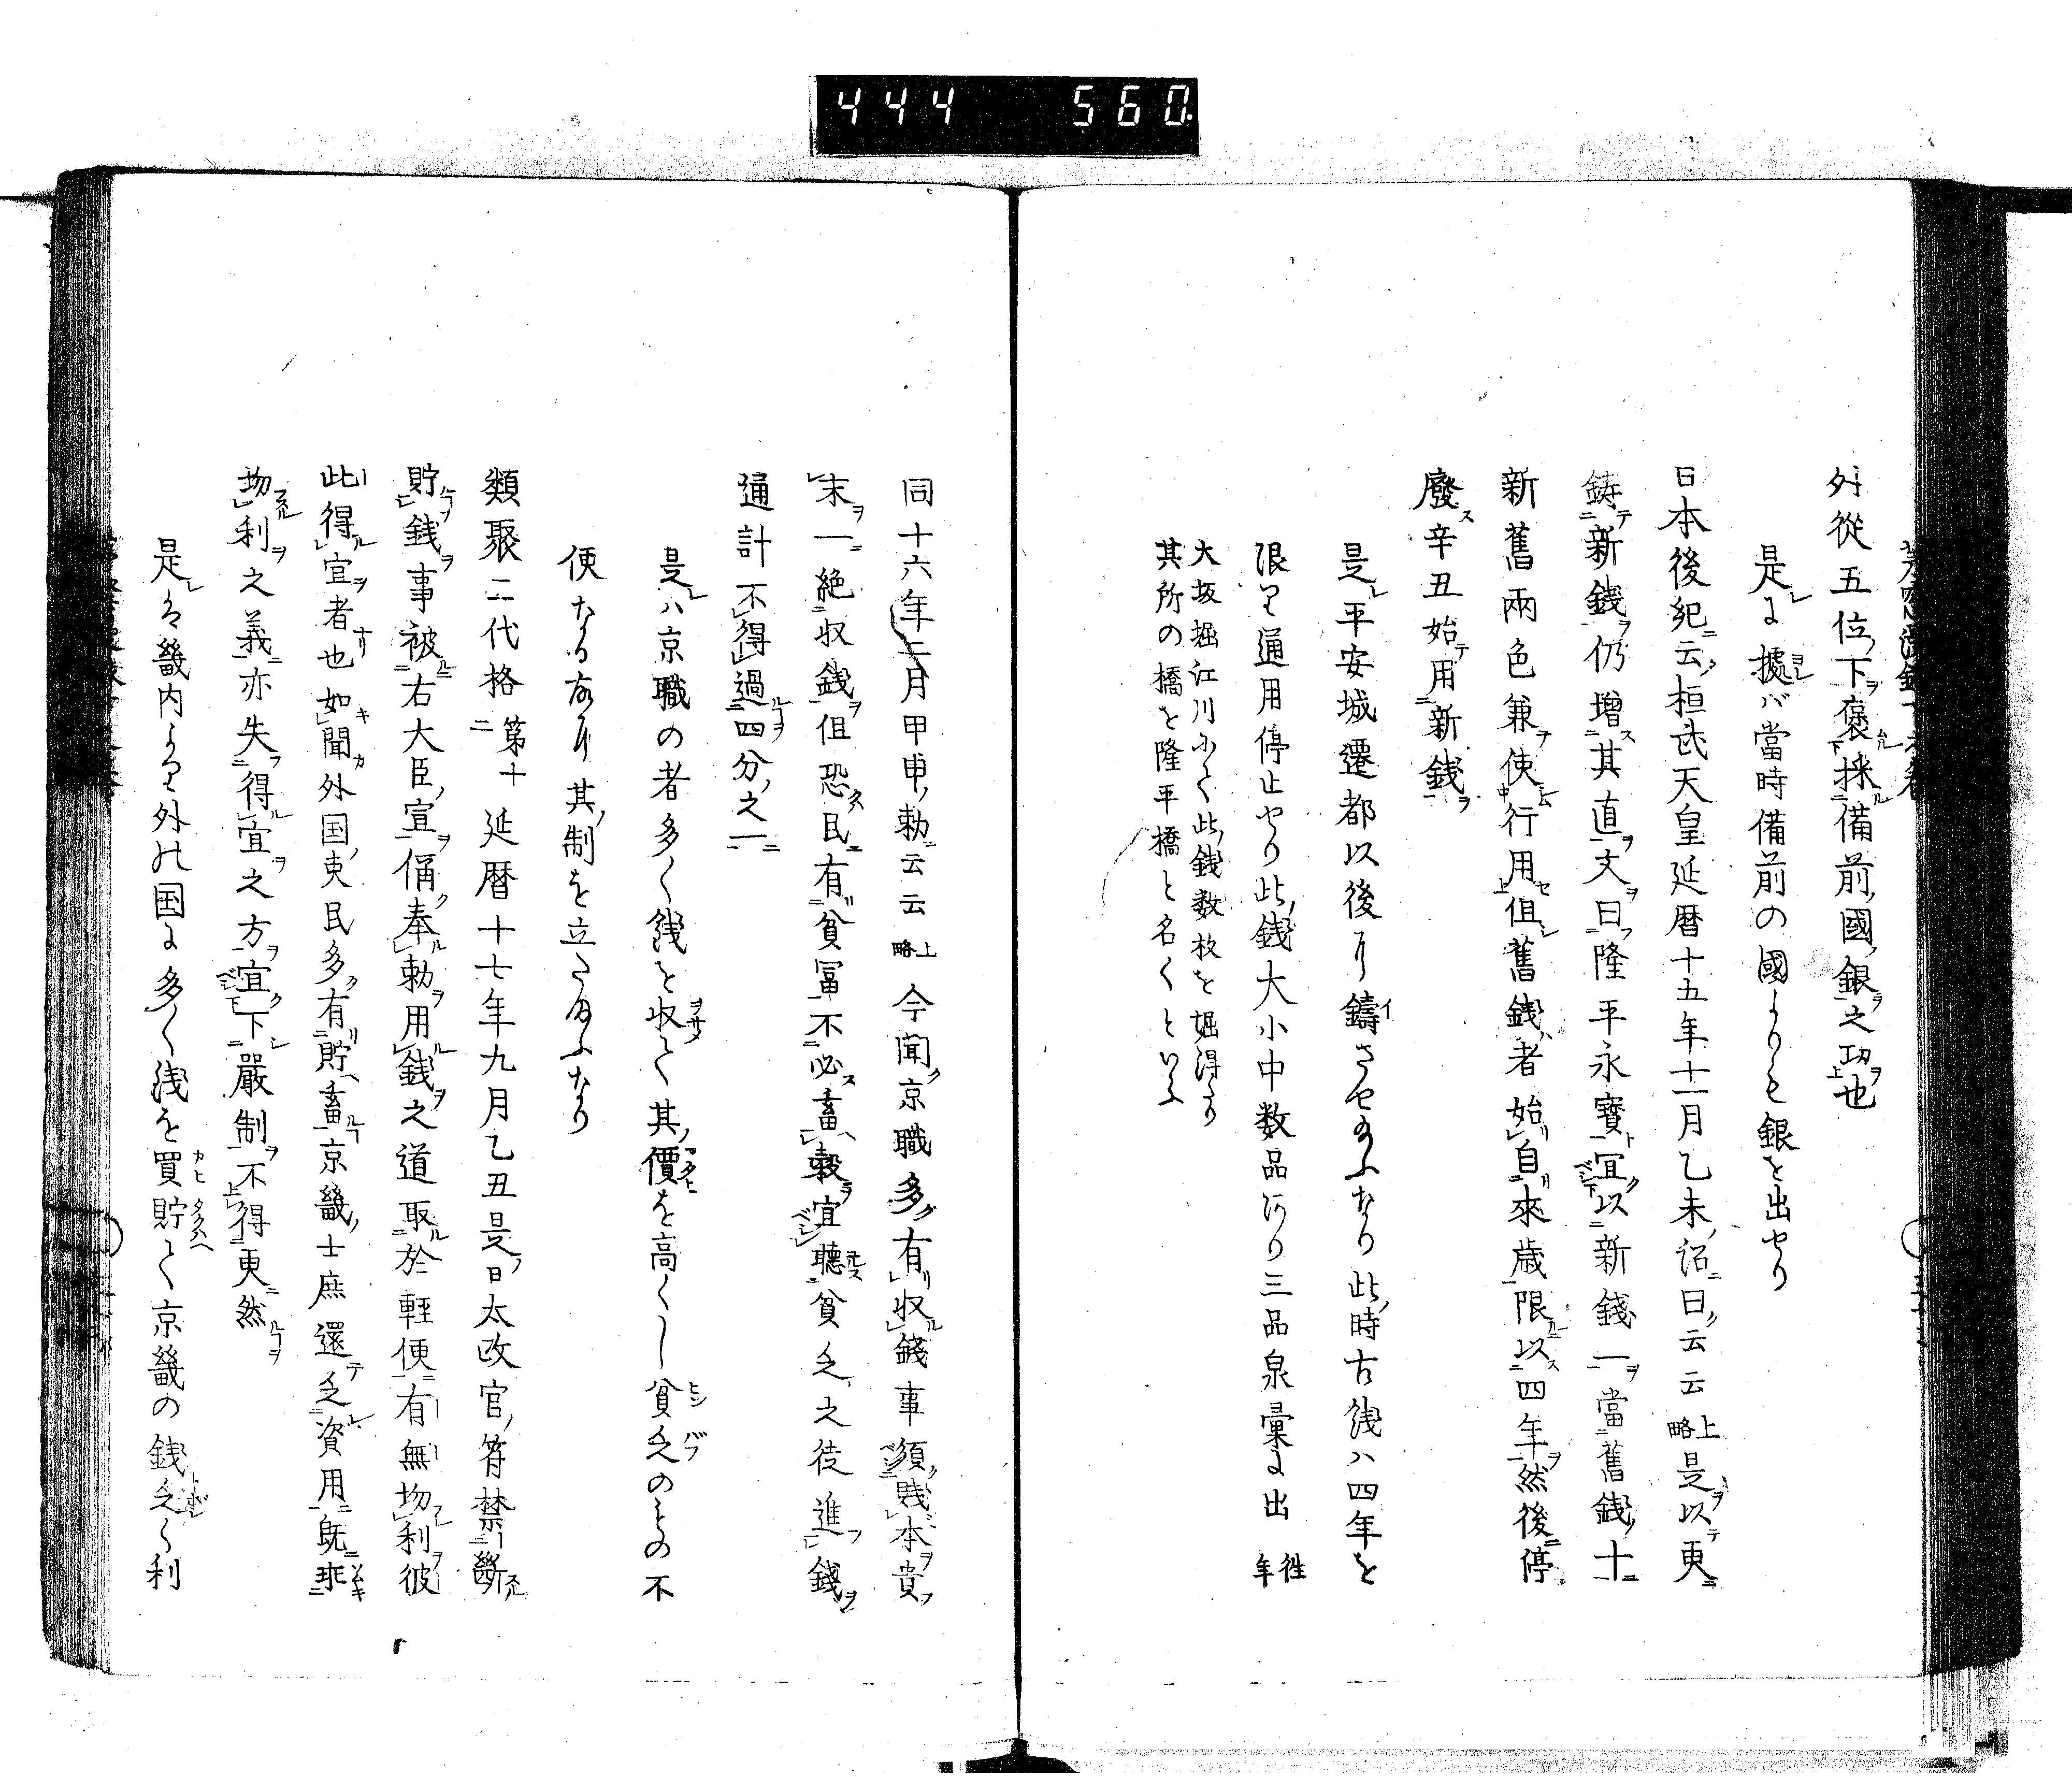 444 560
外從五位下褒採備前國銀之功也
是レに據レバ當時備前の國よりも銀を出せり
日本後紀云桓武天皇延暦十五年十一月乙未詔曰云云上略是以更
鋳新銭仍増其直文曰隆平永寳宜以新銭一當舊銭十
新舊兩色兼使行用但舊銭者始自來歳限以四年然後停
廢辛丑始用新銭
是レ平安城遷都以後に鑄させ給ふなり此時古銭ハ四年を
限り通用停止せり此銭大小中数品あり三品泉彙に出
大坂堀江川にて此銭数枚を堀得たり
其所の橋を隆平橋と名くといふ
同十六年二月甲申勅云云上略今聞京職多有収錢事須賎本貴
末一絶収銭但恐民有貧冨不必畜穀宜聽貧乏之徒進錢
通計不得過四分之一
是レハ京職の者多く銭を収て其價を高くし貧乏のもの不
便なる故に其制を立たまふなり
類聚三代格第十二延暦十七年九月乙丑是日太政官符禁斷
貯銭事被右大臣宣偁奉勅用銭之道取於軽便有無均利彼
此得宜者也如聞外国吏民多有貯畜京畿士庶還乏資用既乖
均利之義亦失得宜之方宜下嚴制不得更然
是レは畿内より外の国に多く銭を買貯て京畿の銭乏く利